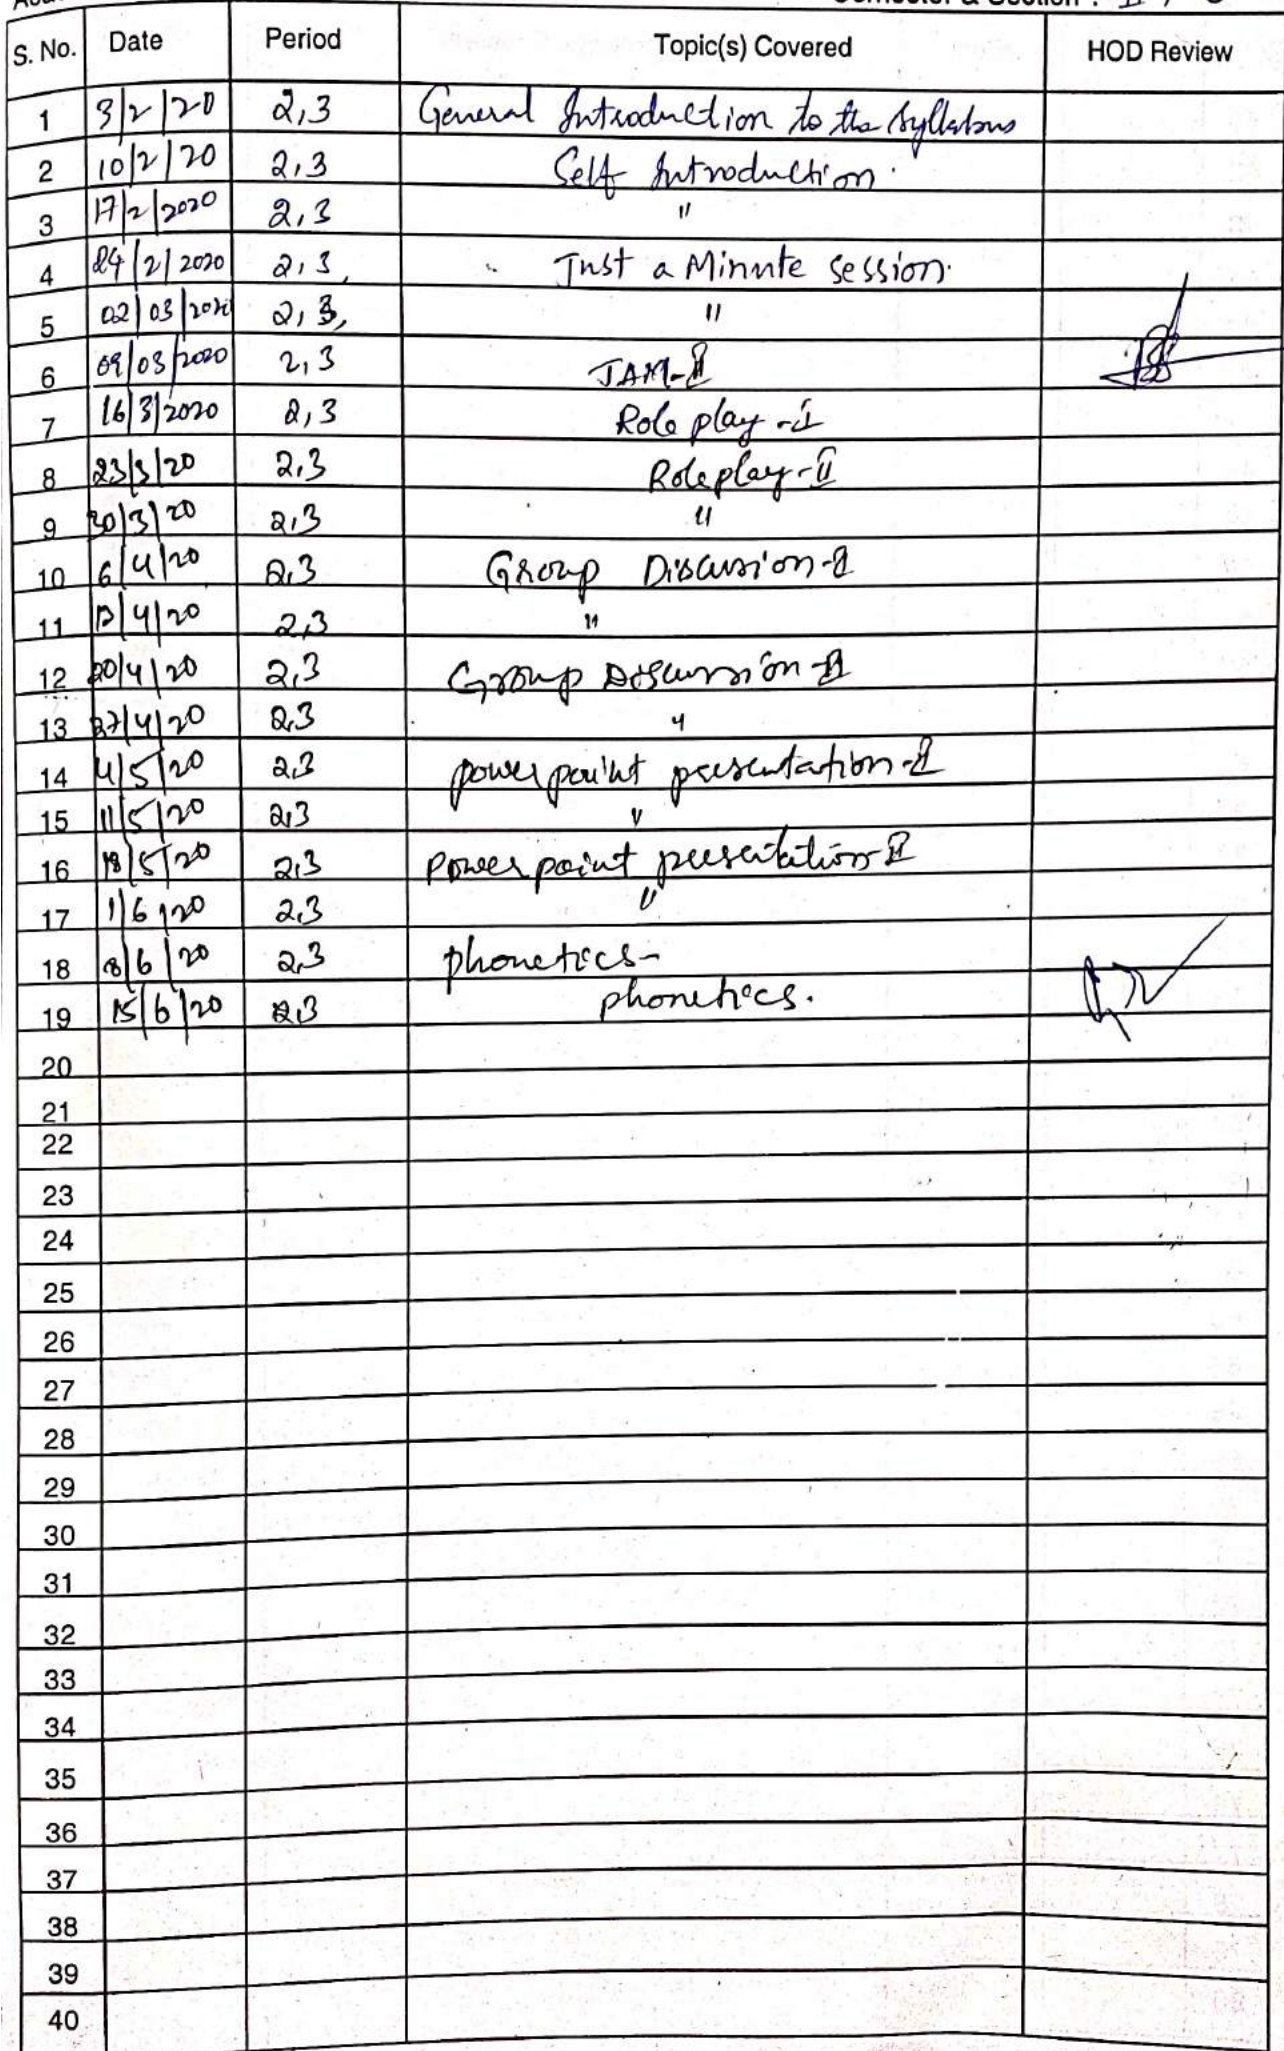 Semester & Section : II /
S. No. Date Period Topic(s) Covered HOD Review
1 3/2/20 2,3 General Introduction to the Syllabus
2 10/2/20 2,3 Self Introduction.
3 17/2/2020 2,3 "
4 24/2/2020 2,3, Just a Minute session.
5 02/03/2020 2,3, "
6 09/03/2020 2,3 JAM-II
7 16/3/2020 2,3 Role play -I
8 23/3/20 2,3 Role play-II
9 30/3/20 2,3 "
10 6/4/20 2,3 Group Discussion-I
11 13/4/20 2,3 "
12 20/4/20 2,3 Group Discussion-II
13 27/4/20 2,3 "
14 4/5/20 2,3 power point presentation-I
15 11/5/20 2,3 "
16 18/5/20 2,3 Power point presentation-II
17 1/6/20 2,3 "
18 8/6/20 2,3 phonetics-
19 15/6/20 2,3 phonetics.
20
21
22
23
24
25
26
27
28
29
30
31
32
33
34
35
36
37
38
39
40